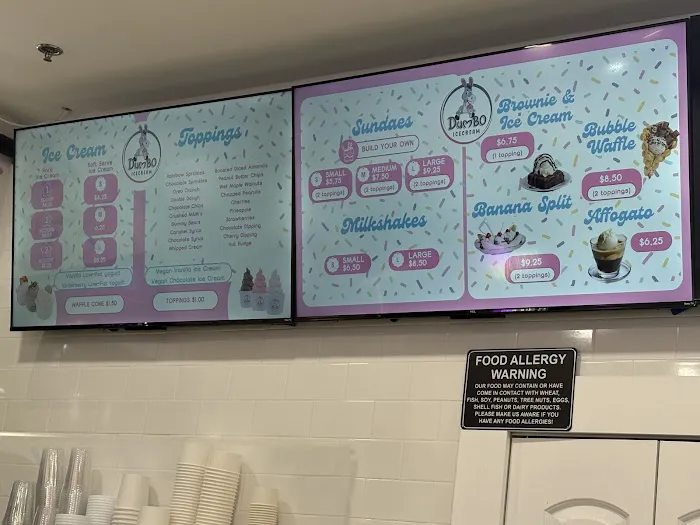 Ice Cream
Toppings
DumBO
ICECREAM
Soft Serve
Ice Cream
Ice Cream
Rainbow Sprinkles
Chocolate Sprinkles
Oreo Crunch
Cookie Dough
Chocolate Chips
Crushed M&M's
Gummy Bears
Caramel Syrup
Chocolate Syrup
Whipped Cream
Peanut Butter Chips
Wet Maple Walnuts
Chopped Peanuts
Cherries
Pineapple
Strawberries
Chocolate Dipping
Cherry Dipping
Hot Fudge
Vegan Vanilla Ice Cream
Vegan Chocolate Ice Cream
WAFFLE CONE $1.50
TOPPINGS $1.00
Sundaes
BUILD YOUR OWN
SMALL
$5.75
(2 toppings)
MEDIUM
$7.50
(2 toppings)
LARGE
$9.25
(2 toppings)
Milkshakes
SMALL
$6.50
LARGE
$8.50
DumBO
ICECREAM
Brownie &
Ice Cream
$6.75
(1 topping)
Bubble
Waffle
$8.50
(2 toppings)
Banana Split
$9.25
(2 toppings)
Affogato
$6.25
FOOD ALLERGY
WARNING
OUR FOOD MAY CONTAIN OR HAVE
COME IN CONTACT WITH WHEAT,
FISH, SOY, PEANUTS, TREE NUTS, EGGS,
SHELL FISH OR DAIRY PRODUCTS.
PLEASE MAKE US AWARE IF YOU
HAVE ANY FOOD ALLERGIES!